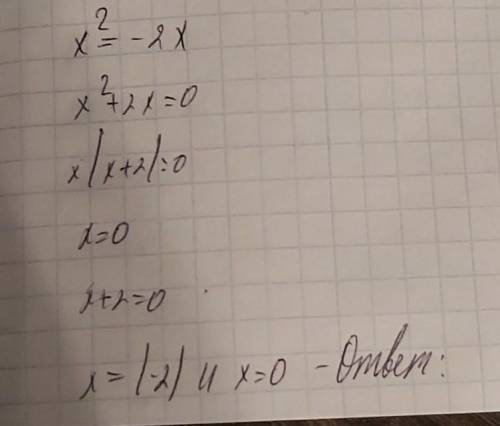 x² = -2x
x²+2x=0
x(x+2)=0
x=0
x+2=0
x=(-2) и x=0 - Ответ: